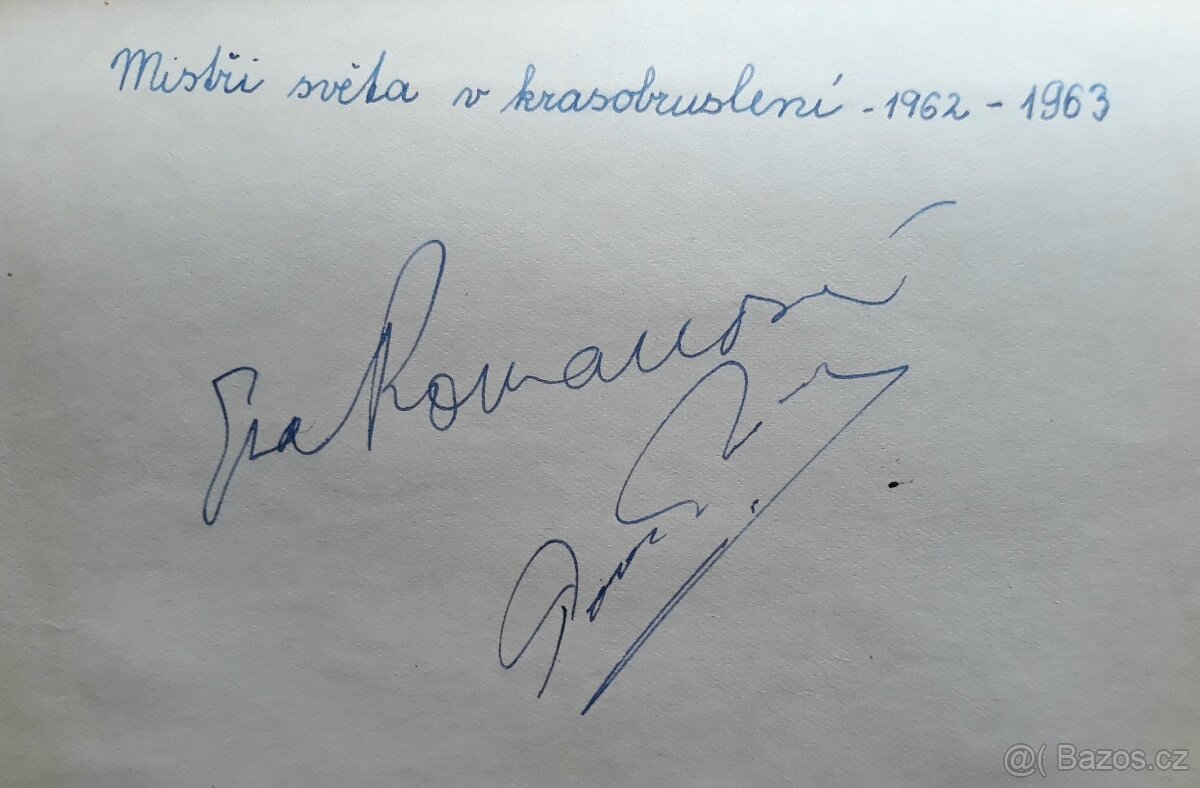 Mistři světa v krasobruslení - 1962 - 1963
Eva Romanová
Pavel
@( Bazos.cz